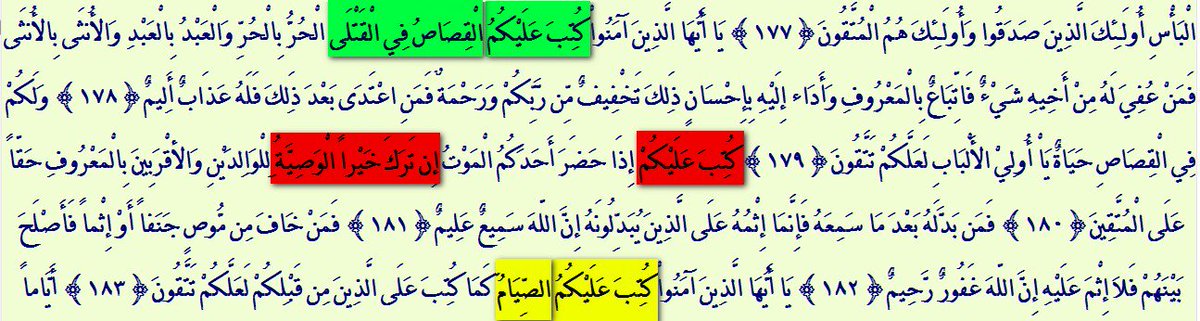 الْبَأْسِ أُولَـئِكَ الَّذِينَ صَدَقُوا وَأُولَـئِكَ هُمُ الْمُتَّقُونَ ﴿١٧٧﴾ يَا أَيُّهَا الَّذِينَ آمَنُواْ كُتِبَ عَلَيْكُمُ الْقِصَاصُ فِي الْقَتْلَى الْحُرُّ بِالْحُرِّ وَالْعَبْدُ بِالْعَبْدِ وَالأُنثَى بِالأُنثَى
فَمَنْ عُفِيَ لَهُ مِنْ أَخِيهِ شَيْءٌ فَاتِّبَاعٌ بِالْمَعْرُوفِ وَأَدَاء إِلَيْهِ بِإِحْسَانٍ ذَلِكَ تَخْفِيفٌ مِّن رَّبِّكُمْ وَرَحْمَةٌ فَمَنِ اعْتَدَى بَعْدَ ذَلِكَ فَلَهُ عَذَابٌ أَلِيمٌ ﴿١٧٨﴾ وَلَكُمْ
فِي الْقِصَاصِ حَيَاةٌ يَا أُولِيْ الأَلْبَابِ لَعَلَّكُمْ تَتَّقُونَ ﴿١٧٩﴾ كُتِبَ عَلَيْكُمْ إِذَا حَضَرَ أَحَدَكُمُ الْمَوْتُ إِن تَرَكَ خَيْراً الْوَصِيَّةُ لِلْوَالِدَيْنِ وَالأقْرَبِينَ بِالْمَعْرُوفِ حَقّاً
عَلَى الْمُتَّقِينَ ﴿١٨٠﴾ فَمَن بَدَّلَهُ بَعْدَ مَا سَمِعَهُ فَإِنَّمَا إِثْمُهُ عَلَى الَّذِينَ يُبَدِّلُونَهُ إِنَّ اللّهَ سَمِيعٌ عَلِيمٌ ﴿١٨١﴾ فَمَنْ خَافَ مِن مُّوصٍ جَنَفاً أَوْ إِثْماً فَأَصْلَحَ
بَيْنَهُمْ فَلاَ إِثْمَ عَلَيْهِ إِنَّ اللّهَ غَفُورٌ رَّحِيمٌ ﴿١٨٢﴾ يَا أَيُّهَا الَّذِينَ آمَنُواْ كُتِبَ عَلَيْكُمُ الصِّيَامُ كَمَا كُتِبَ عَلَى الَّذِينَ مِن قَبْلِكُمْ لَعَلَّكُمْ تَتَّقُونَ ﴿١٨٣﴾ أَيَّاماً